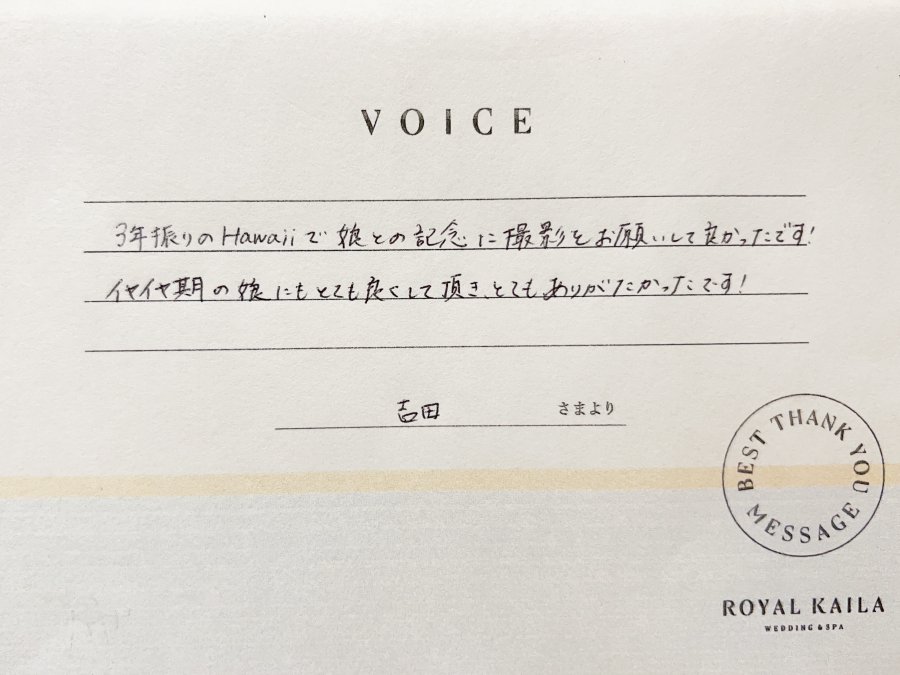 VOICE
3年振りのHawaiiで娘との記念に撮影をお願いして良かったです!
イヤイヤ期の娘にもとても良くして頂き、とてもありがたかったです!
吉田 さまより
BEST THANK YOU MESSAGE
ROYAL KAILA
WEDDING & SPA